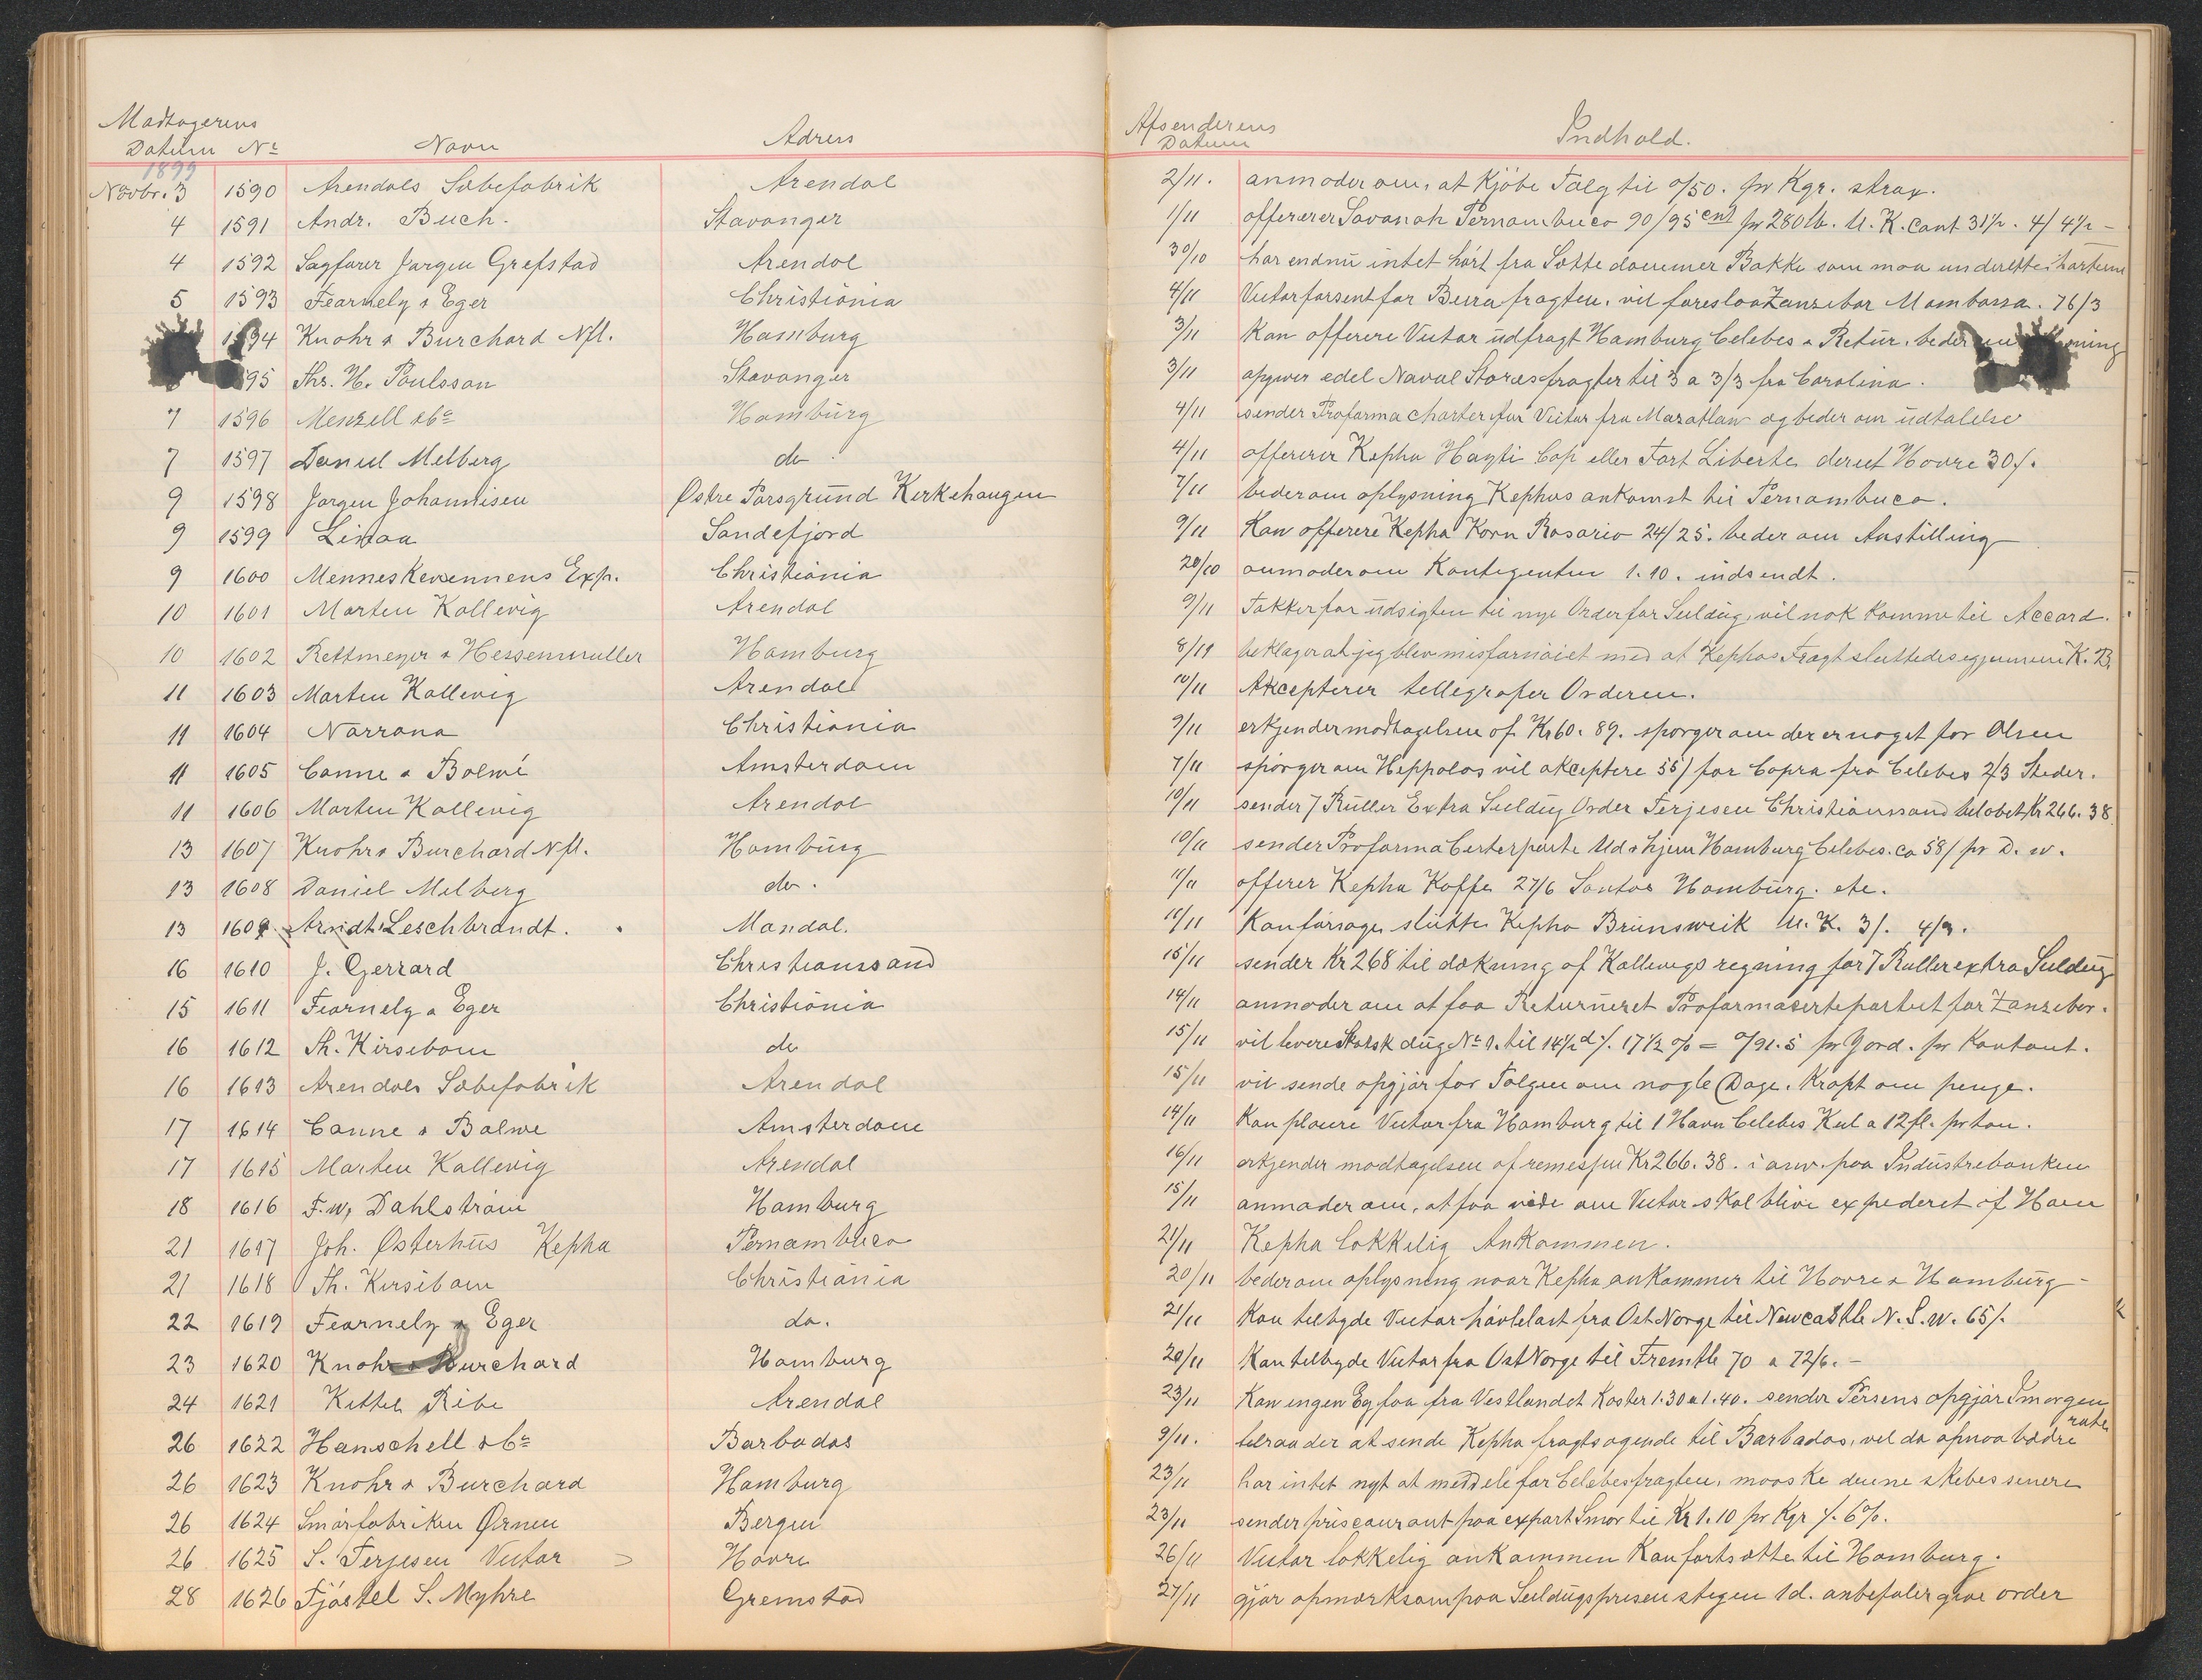 Modtagerens Afsenderens
Datum No Navn Adress Datum Indhold.
1899
Novbr. 3 1590 Arendals Sæbefabrik Arendal 2/11. anmoder om, at Kjöbe Talg til o/50. pr Kgr. strax.
4 1591 Andr. Buch. Stavanger 1/11 offererer Savanah Pernambuco 90/95 cent pr 280 lb. U. K. Cont 31½. 4/ 4½ -
4 1592 Sagförer Jørgen Grefstad Arendal 30/10 har endnu intet hört fra Sötte dommer Bakke som maa
5 1593 Fearnely & Eger Christiania 4/11 Victor forsent for Beira fragten, vil foreslaa Zanzebar Mambassa. 76/3
1594 Knohr & Burchard Nfl. Hamburg 3/11 Kan offerere Victor udfragt Hamburg Celebes & Retur. beder om
95 Thr. H. Poulsson Stavanger 3/11 opgiver edel Naval Stores fragter til 3 a 3/3 fra Carolina.
7 1596 Menzell & Co Hamburg 4/11 sender Proforma charter for Victor fra Mazatlan og beder om udtalelse
7 1597 Daniel Melberg do 4/11 offererer Kepha Hayti Cap eller Fort Liberte derut Havre 30/.
9 1598 Jørgen Johannisen Østre Porsgrund Kirkehaugen 7/11 beder om oplysning Kephas ankomst til Pernambuco.
9 1599 Linaa Sandefjord 9/11 Kan offerere Kepha Korn Rosario 24/25. beder om Anstilling
9 1600 Menneskevennens Exp. Christiania 20/10 anmoder om Kontigenten 1.10. indsendt.
10 1601 Morten Kallevig Arendal 9/11 Takker for udsigten til nye Order for Seildug, vil nok komme til Accord.
10 1602 Rettmeyer & Hessenmuller Hamburg 8/11 beklager at jeg blev misfornöiet med at Kephas Fragt sluttedes gjennem K. B.
11 1603 Morten Kallevig Arendal 10/11 Akcepterer tellegrafer Orderen.
11 1604 Norrona Christiania 9/11 erkjender modtagelsen af Kr 60. 89. spörger om der er noget for Olsen
11 1605 Canne & Balwé Amsterdam 7/11 spörger om Heppolos vil akceptere 55/ for Copra fra Celebes 2/3 Steder.
11 1606 Morten Kallevig Arendal 10/11 sender 7 Ruller Extra Seildug Order Terjesen Christianssand belobet Kr 266. 38
13 1607 Knohr & Burchard Nfl. Hamburg 10/11 sender Proforma Certerparte Ud & hjem Hamburg Celebes. ca 58/ pr D. w.
13 1608 Daniel Melberg do. 11/11 offerer Kepha Koffe 27/6 Santos Hamburg. etc.
13 1609 Arndt Leschbrandt. Mandal. 11/11 Kan forsöge slutte Kepha Brunsweik U. K. 3/. 4/9.
16 1610 J. Gerrard Christianssand 15/11 sender Kr 268 til dækning af Kallevigs regning for 7 Ruller extra Seildug
15 1611 Fearnely & Eger Christiania 14/11 anmoder om at faa Returneret Proformacertepartiet for Zanzebar.
16 1612 Th. Kirsebom do 15/11 vil levere Skotsk dug No 1. til 14½ d /. 17½ % = o/91.5 pr Yard. pr Kontant.
16 1613 Arendals Sæbefabrik Arendal 15/11 vil sende opgjör for Talgen om nogle Dage. Knapt om penge.
17 1614 Canne & Balwe Amsterdam 14/11 Kan placere Victor fra Hamburg til 1 Havn Celebes Kul a 12 fl. pr ton.
17 1615 Morten Kallevig Arendal 16/11 erkjender modtagelsen af remessen Kr 266. 38. i anv. paa Industrebanken
18 1616 F. W. Dahlström Hamburg 15/11 anmoder om, at faa vide om Victor skal blive expederet af Ham
21 1617 Joh. Østerhus Kepha Pernambuco 21/11 Kepha lokkelig Ankommen.
21 1618 Th. Kirsibom Christiania 20/11 beder om oplysning naar Kepha ankommer til Havre & Hamburg -
22 1619 Fearnely & Eger do. 21/11 Kan tilbyde Victor hövlelast fra Ost Norge til Newcastle N. S. W. 65/.
23 1620 Knohr & Burchard Hamburg 20/11 Kan tilbyde Victor fra Ost Norge til Fremtle 70 a 72/6. -
24 1621 Kittel Ribe Arendal 23/11 Kan ingen Eg faa fra Vestlandet Koster 1.30 a 1.40. sender Persens opgjör Imorgen
26 1622 Hanschell & Co Barbados 9/11. telraader at sende Kepha fragtsögende til Barbados, vil da opnaa bædre rate
26 1623 Knohr & Burchard Hamburg 23/11 har intet nyt at meddele for Celebesfragten, maaske denne skebes senere
26 1624 Smörfabriken Ørnen Bergen 23/11 sender priscaurant paa export Smör til Kr 1.10 pr Kgr /. 6%.
26 1625 S. Terjesen Victor Havre 26/11 Victor lokkelig ankommen Kan fortsætte til Hamburg.
28 1626 Fjöstel S. Myhre Gremstad 27/11 gjör opmærksom paa Seildugsprisen stegen 1d. anbefaler give order